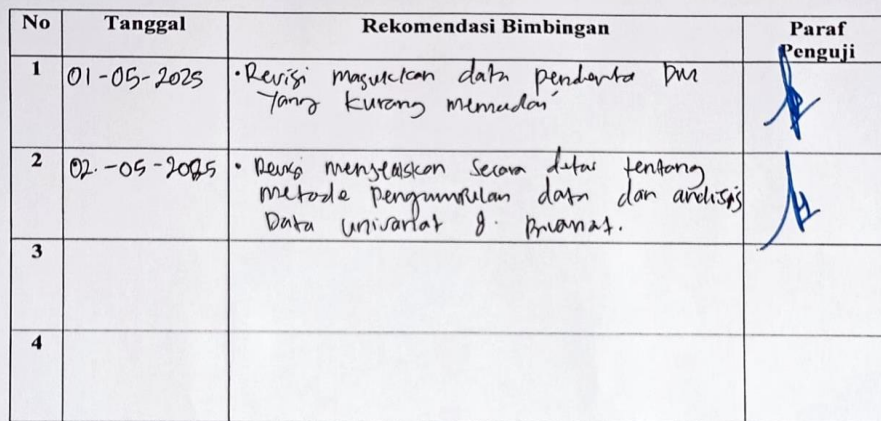 No Tanggal Rekomendasi Bimbingan Paraf
Penguji
1 01-05-2025 • Revisi masukkan data penderita DM
Yang kurang memadai
2 02.-05-2025 • Revisi menjelaskan secara detail tentang
metode pengumpulan data dan analisis
Data univariat & Bivariat.
3
4